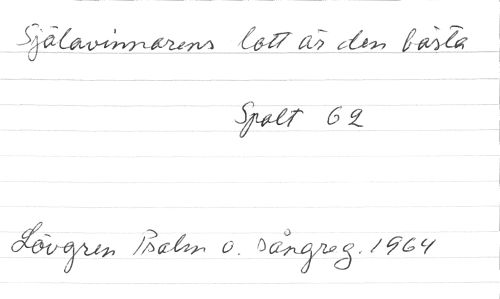 Själavinnarens lott är den bästa
Spalt 62
Lövgren Psalm o. sångreg. 1964